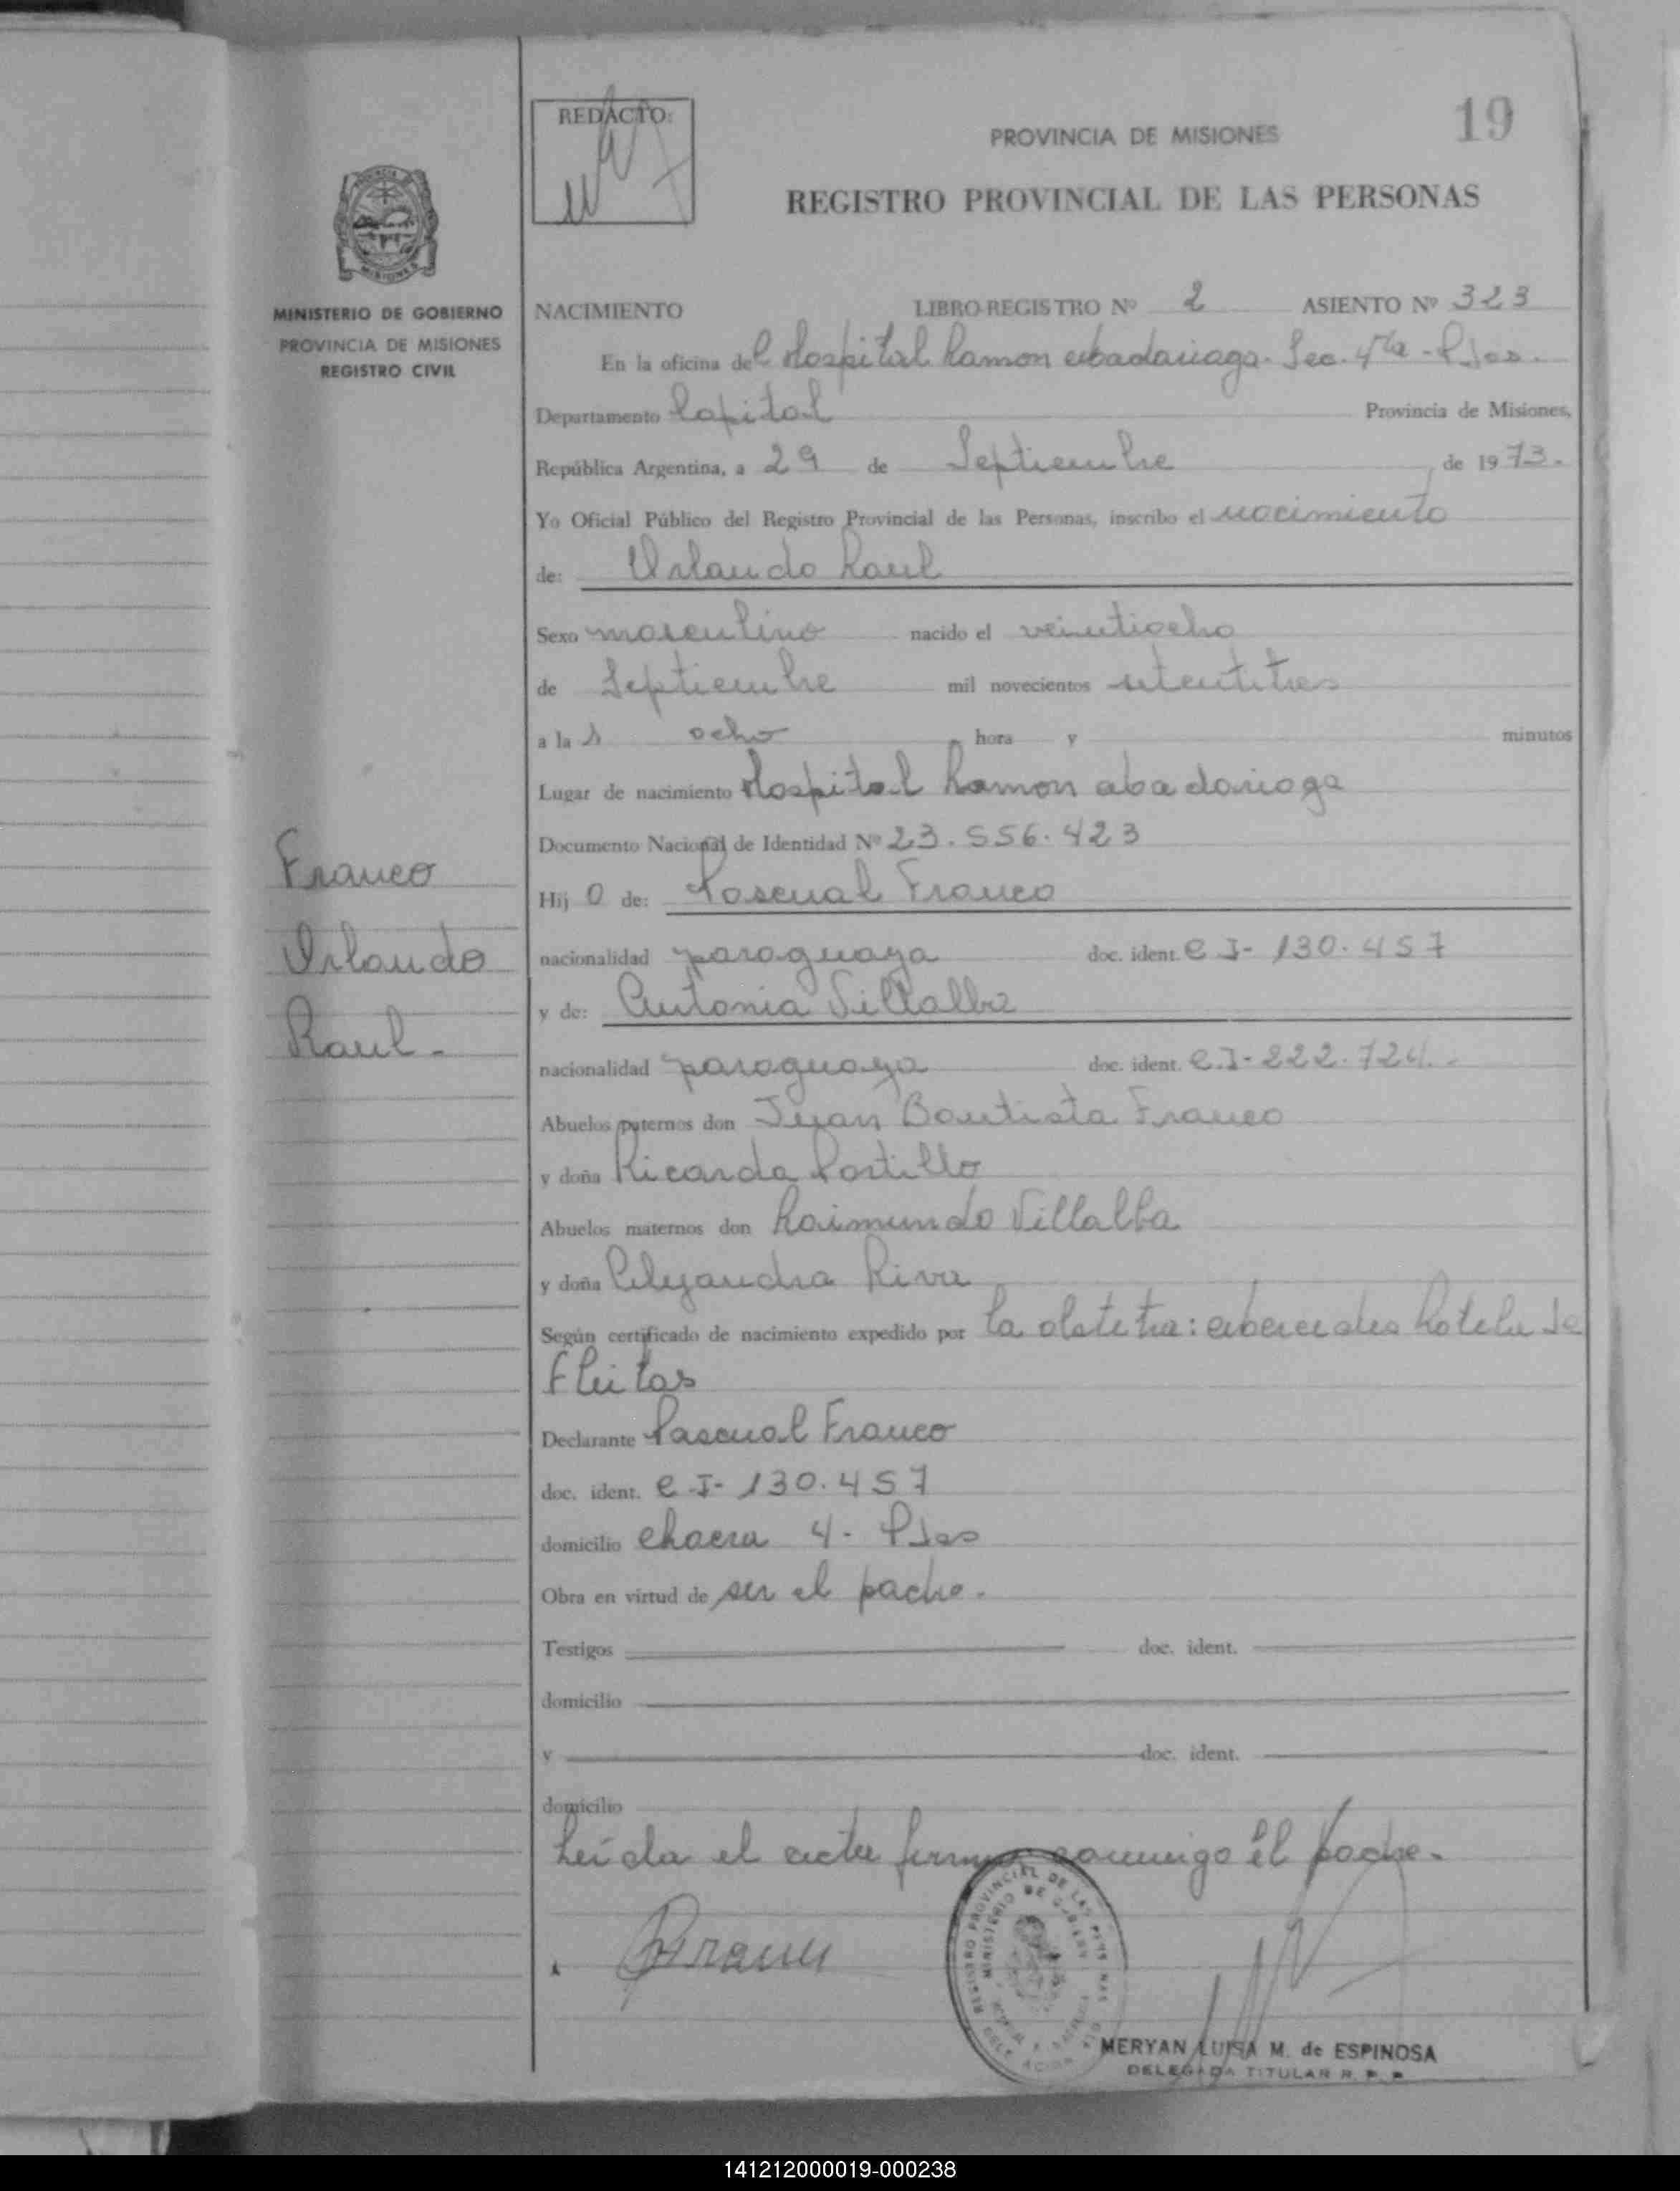 19
REDACTO:
PROVINCIA DE MISIONES
REGISTRO PROVINCIAL DE LAS PERSONAS
MINISTERIO DE GOBIERNO
PROVINCIA DE MISIONES
REGISTRO CIVIL
NACIMIENTO LIBRO-REGISTRO Nº 2 ASIENTO Nº 323
En la oficina del Hospital Ramon abadariaga. Sec. 4ta - Pdas.
Departamento Capital Provincia de Misiones,
República Argentina, a 29 de Septiembre de 1973.
Yo Oficial Público del Registro Provincial de las Personas, inscribo el nacimiento
de: Orlando Raul
Sexo masculino nacido el veintiocho
de Septiembre mil novecientos setentitres
a las ocho hora y minutos
Lugar de nacimiento Hospital Ramon abadariaga
Documento Nacional de Identidad Nº 23.556.423
Hijo de: Pascual Franco
nacionalidad paraguaya doc. ident. C I- 130.457
y de: Antonia Villalba
nacionalidad paraguaya doc. ident. C.I- 222.724.-
Abuelos paternos don Juan Bautista Franco
y doña Ricarda Portillo
Abuelos maternos don Raimundo Villalba
y doña Alejandra Riva
Según certificado de nacimiento expedido por la obstetra: de
Fleitas
Declarante Pascual Franco
doc. ident. C.I- 130.457
domicilio chacra 4. Pdas
Obra en virtud de ser el padre.
Testigos doc. ident.
domicilio
y doc. ident.
domicilio
Leida el acta firma conmigo él padre.
Franco
Orlando
Raul.-
REGISTRO PROVINCIAL DE LAS PERSONAS
MINISTERIO DE GOBIERNO
MERYAN LUISA M. de ESPINOSA
DELEGADA TITULAR R. P. P.
141212000019-000238